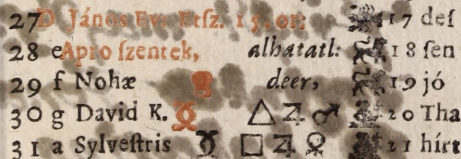 27 D János Ev. Etsz. 17 deſ
28 e Apro ſzentek, alhatatl: 18 ſen
29 f Nohæ deer, 19 jó
30 g David K. ♋ △ ♃ ♂ 20 Tha
31 a Sylveſtris □ ♃ ♀ 21 hírt